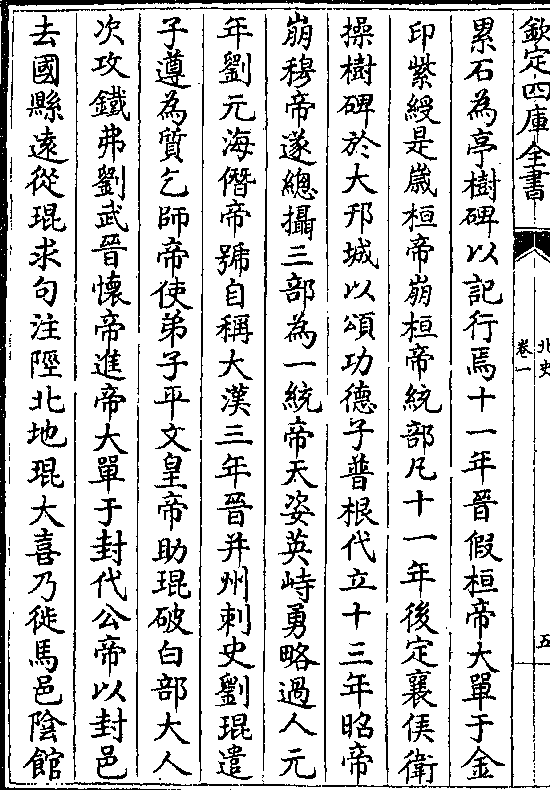 欽定四庫全書
北史
卷一
五
累石為亭樹碑以記行焉十一年晉假桓帝大單于金
印紫綬是嵗桓帝崩桓帝統部凡十一年後定襄侯衛
操樹碑於大邗城以頌功德子普根代立十三年昭帝
崩穆帝遂總攝三部為一統帝天姿英峙勇略過人元
年劉元海僭帝號自稱大漢三年晉并州刺史劉琨遣
子遵為質乞師帝使弟子平文皇帝助琨破白部大人
次攻鐵弗劉武晉懷帝進帝大單于封代公帝以封邑
去國縣逺從琨求句注陘北地琨大喜乃徙馬邑陰館